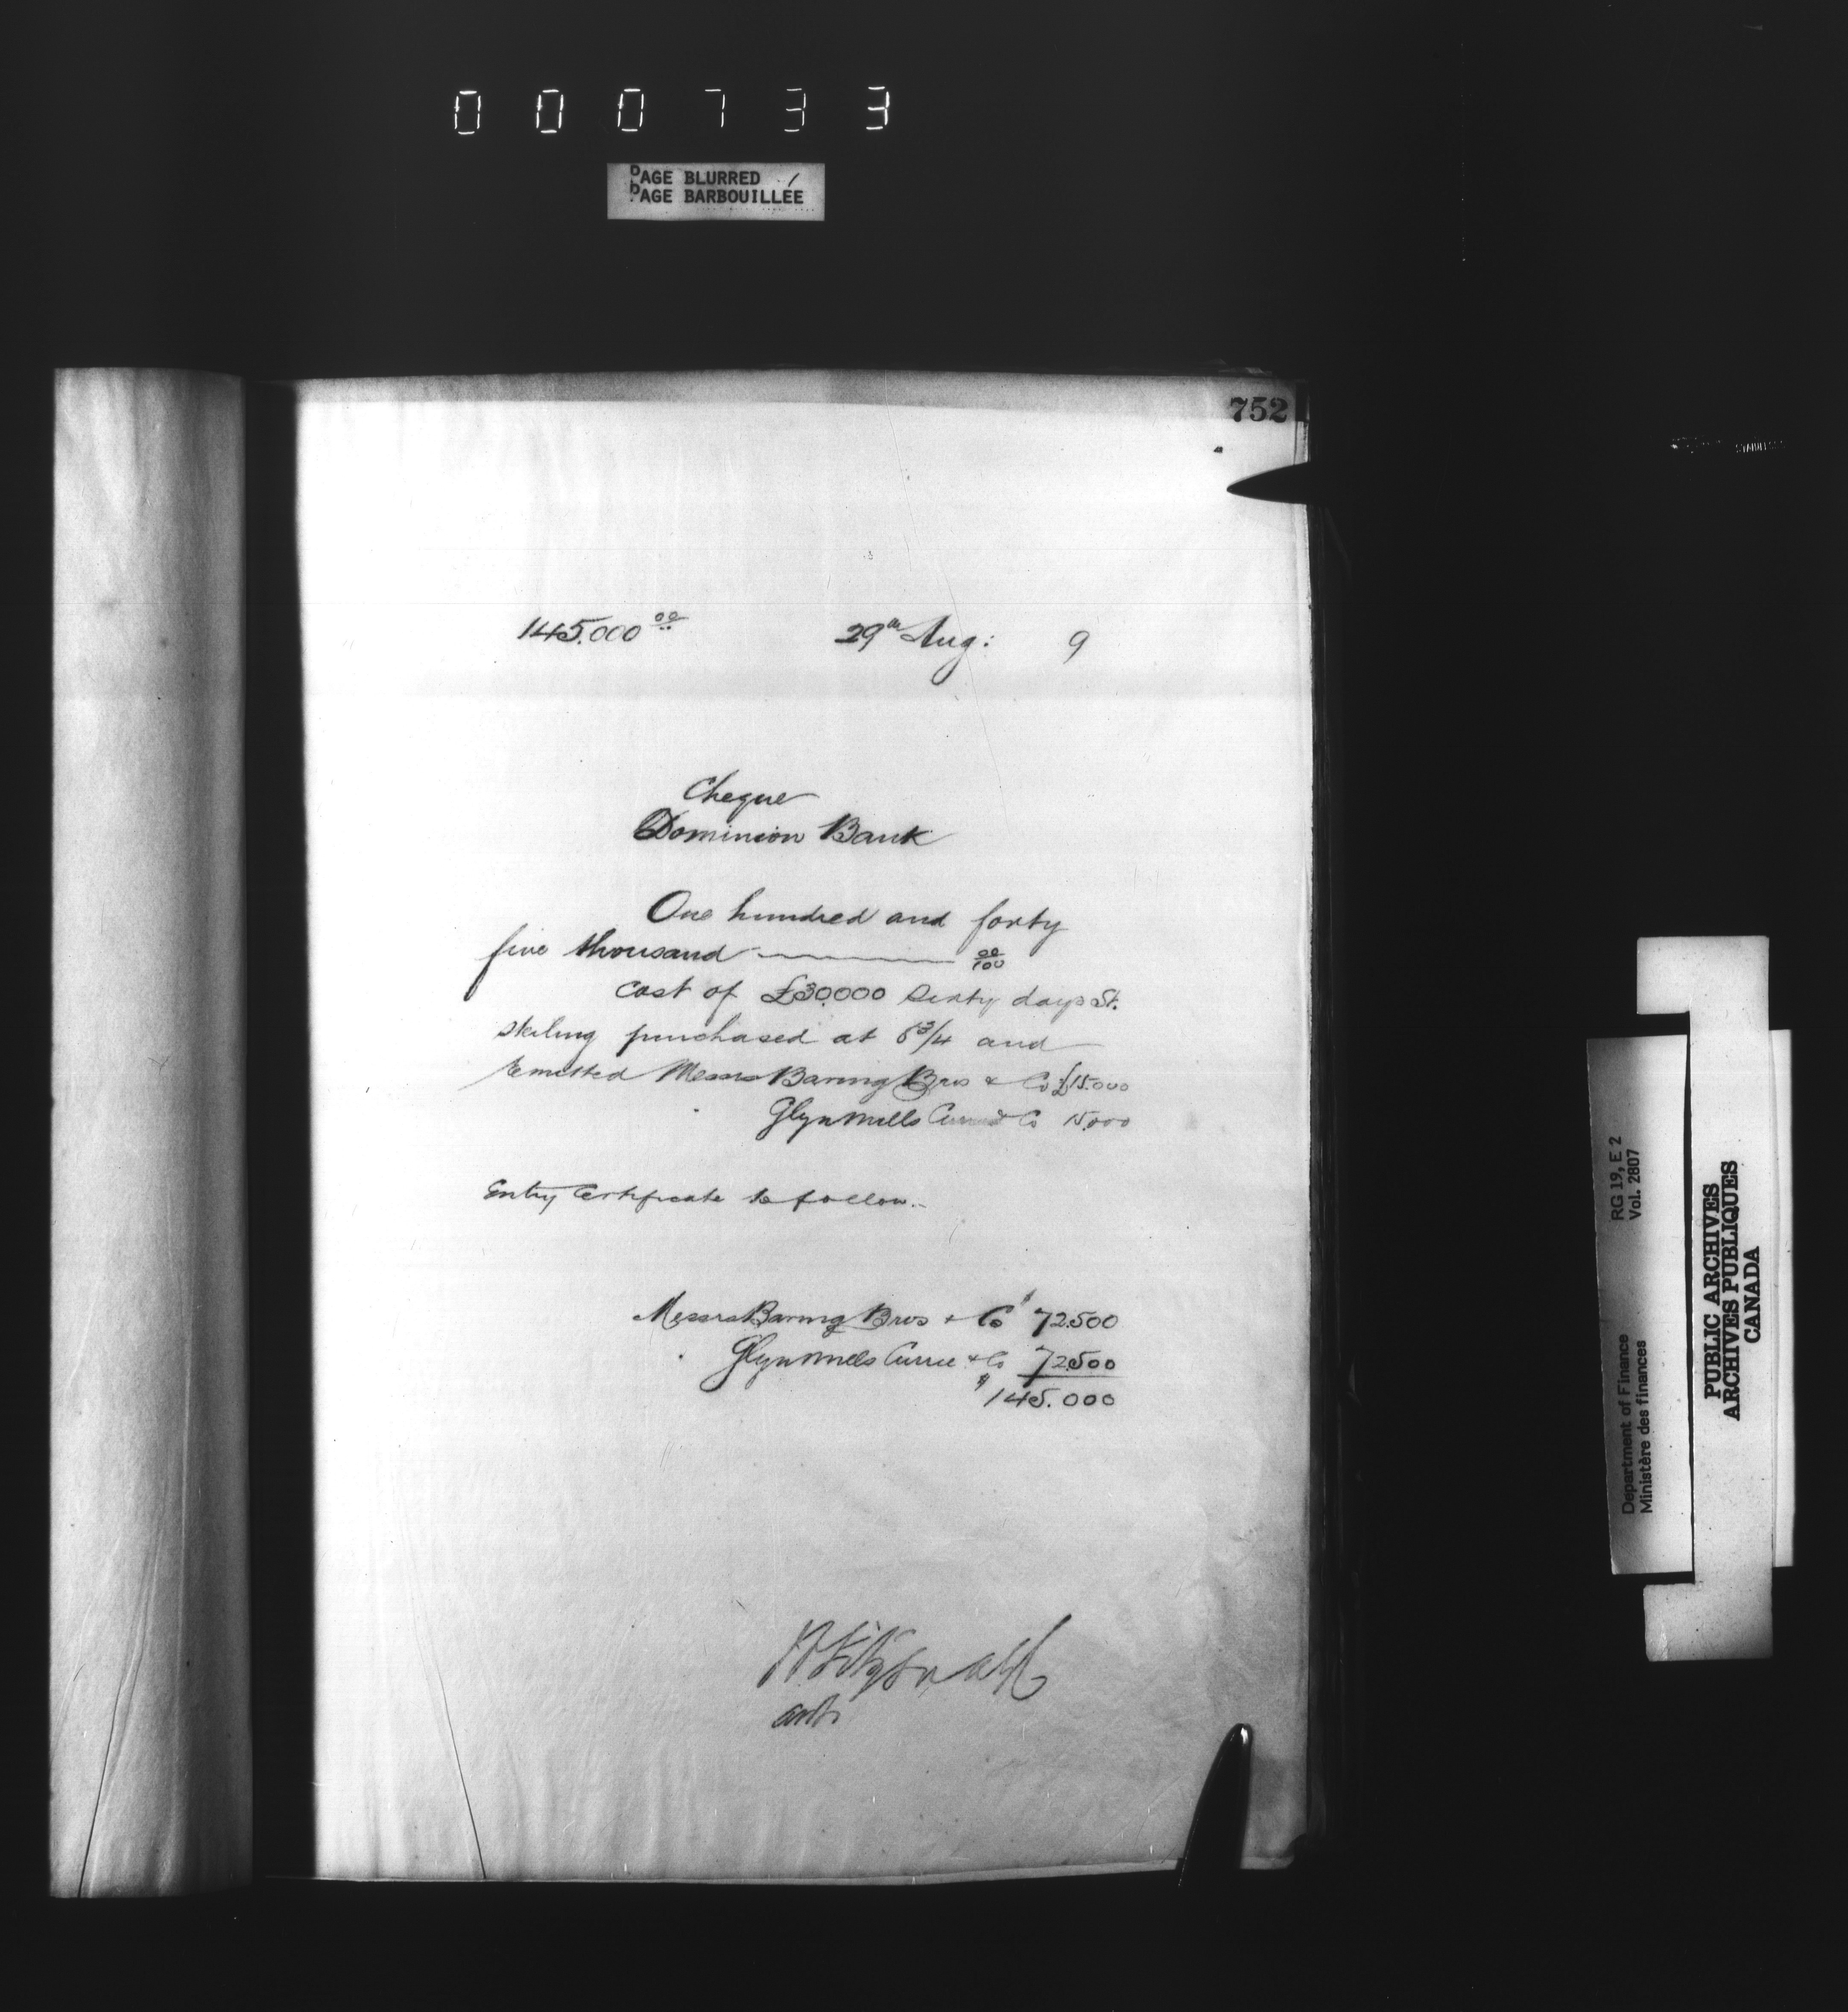 000733
PAGE BLURRED
PAGE BARBOUILLÉE
752
145.000 00
29th Aug: 9
Cheque
Dominion Bank
One hundred and forty
five thousand ——— 00/100
Cost of £30.000 Sixty days St.
Sterling purchased at 8 3/4 and
remitted Messrs Baring Bros & Co £15.000
Glyn Mills Currie & Co 15,000
Entry Certificate to follow.
Messrs Baring Bros & Co $ 72.500
Glyn Mills Currie & Co 72.500
$ 145.000
RG 19, E 2
Vol. 2807
Department of Finance
Ministère des finances
PUBLIC ARCHIVES
ARCHIVES PUBLIQUES
CANADA